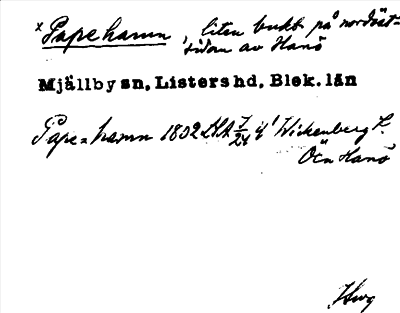 x Papehamn, liten bukt på nordväst-
sidan av Hanö
Mjällby sn, Listers hd, Blek. län
Pape=hamn 1802 LSA 7/24 i/ Wickenberg k.
Ön Hanö